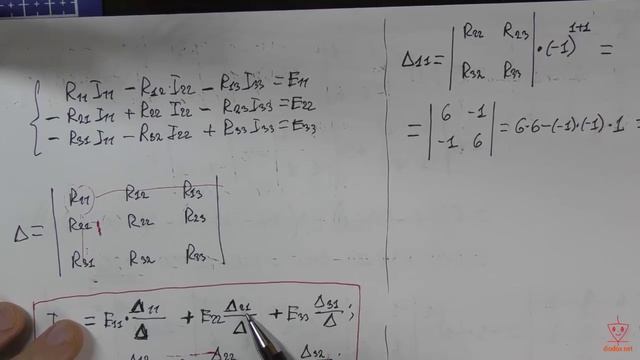 R11I11 - R12I22 - R13I33 = E11
- R21I11 + R22I22 - R23I33 = E22
- R31I11 - R32I22 + R33I33 = E33
Δ = | R11 R12 R13 |
| R21 R22 R23 |
| R31 R32 R33 |
= E11 · Δ11/Δ + E22 Δ21/Δ + E33 Δ31/Δ ;
Δ22 Δ32
Δ11 = | R22 R23 | · (-1)^1+1 =
| R32 R33 |
= | 6 -1 | = 6·6-(-1)·(-1)·1 =
| -1 6 |
diodov.net